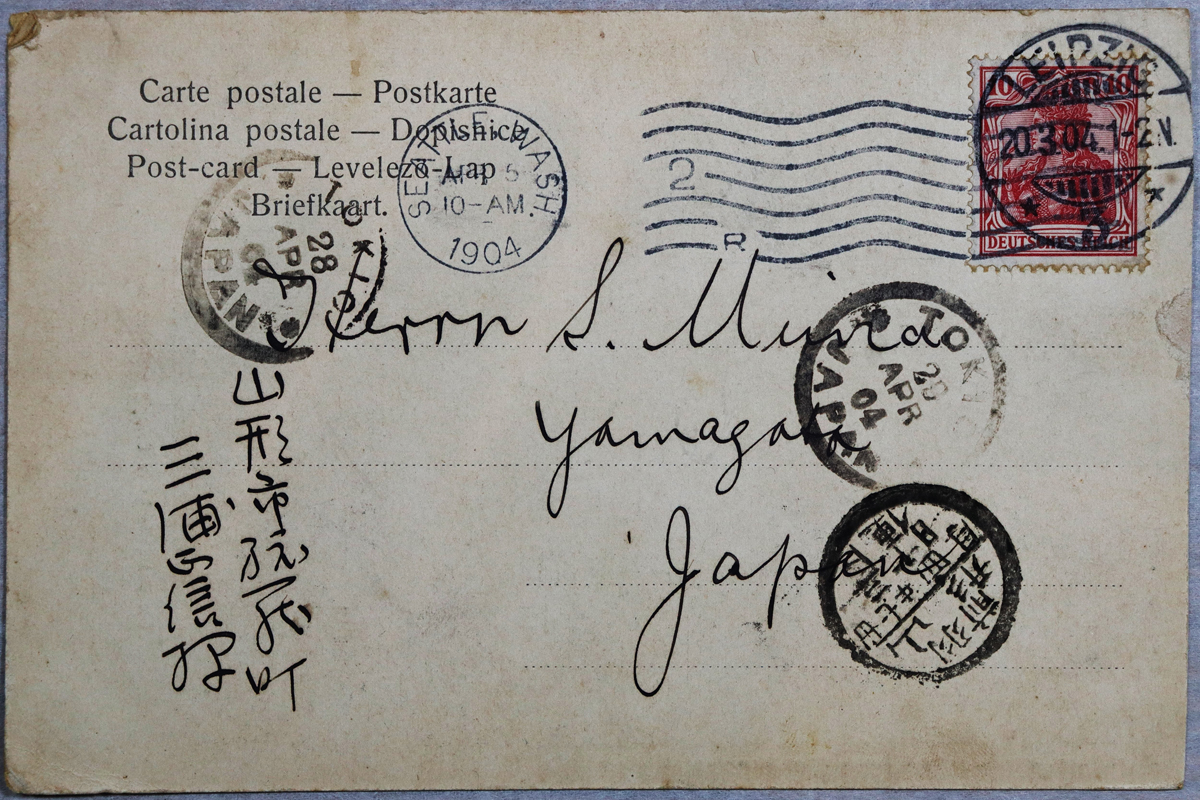 Carte postale — Postkarte
Cartolina postale — Dopisnice
Post-card — Levelező-Lap
Briefkaart.
SEATTLE, WASH
APR 5
10-AM.
1904
2
R
LEIPZIG
20.3.04.1-2N.
* 3 *
10 10
DEUTSCHES REICH
TOKIO
28
APR
04
JAPAN
Herrn S. Miura
Yamagata
Japan
TOKIO
APR
04
JAPAN
羽前
山形
山形市旅篭町
三浦正信様